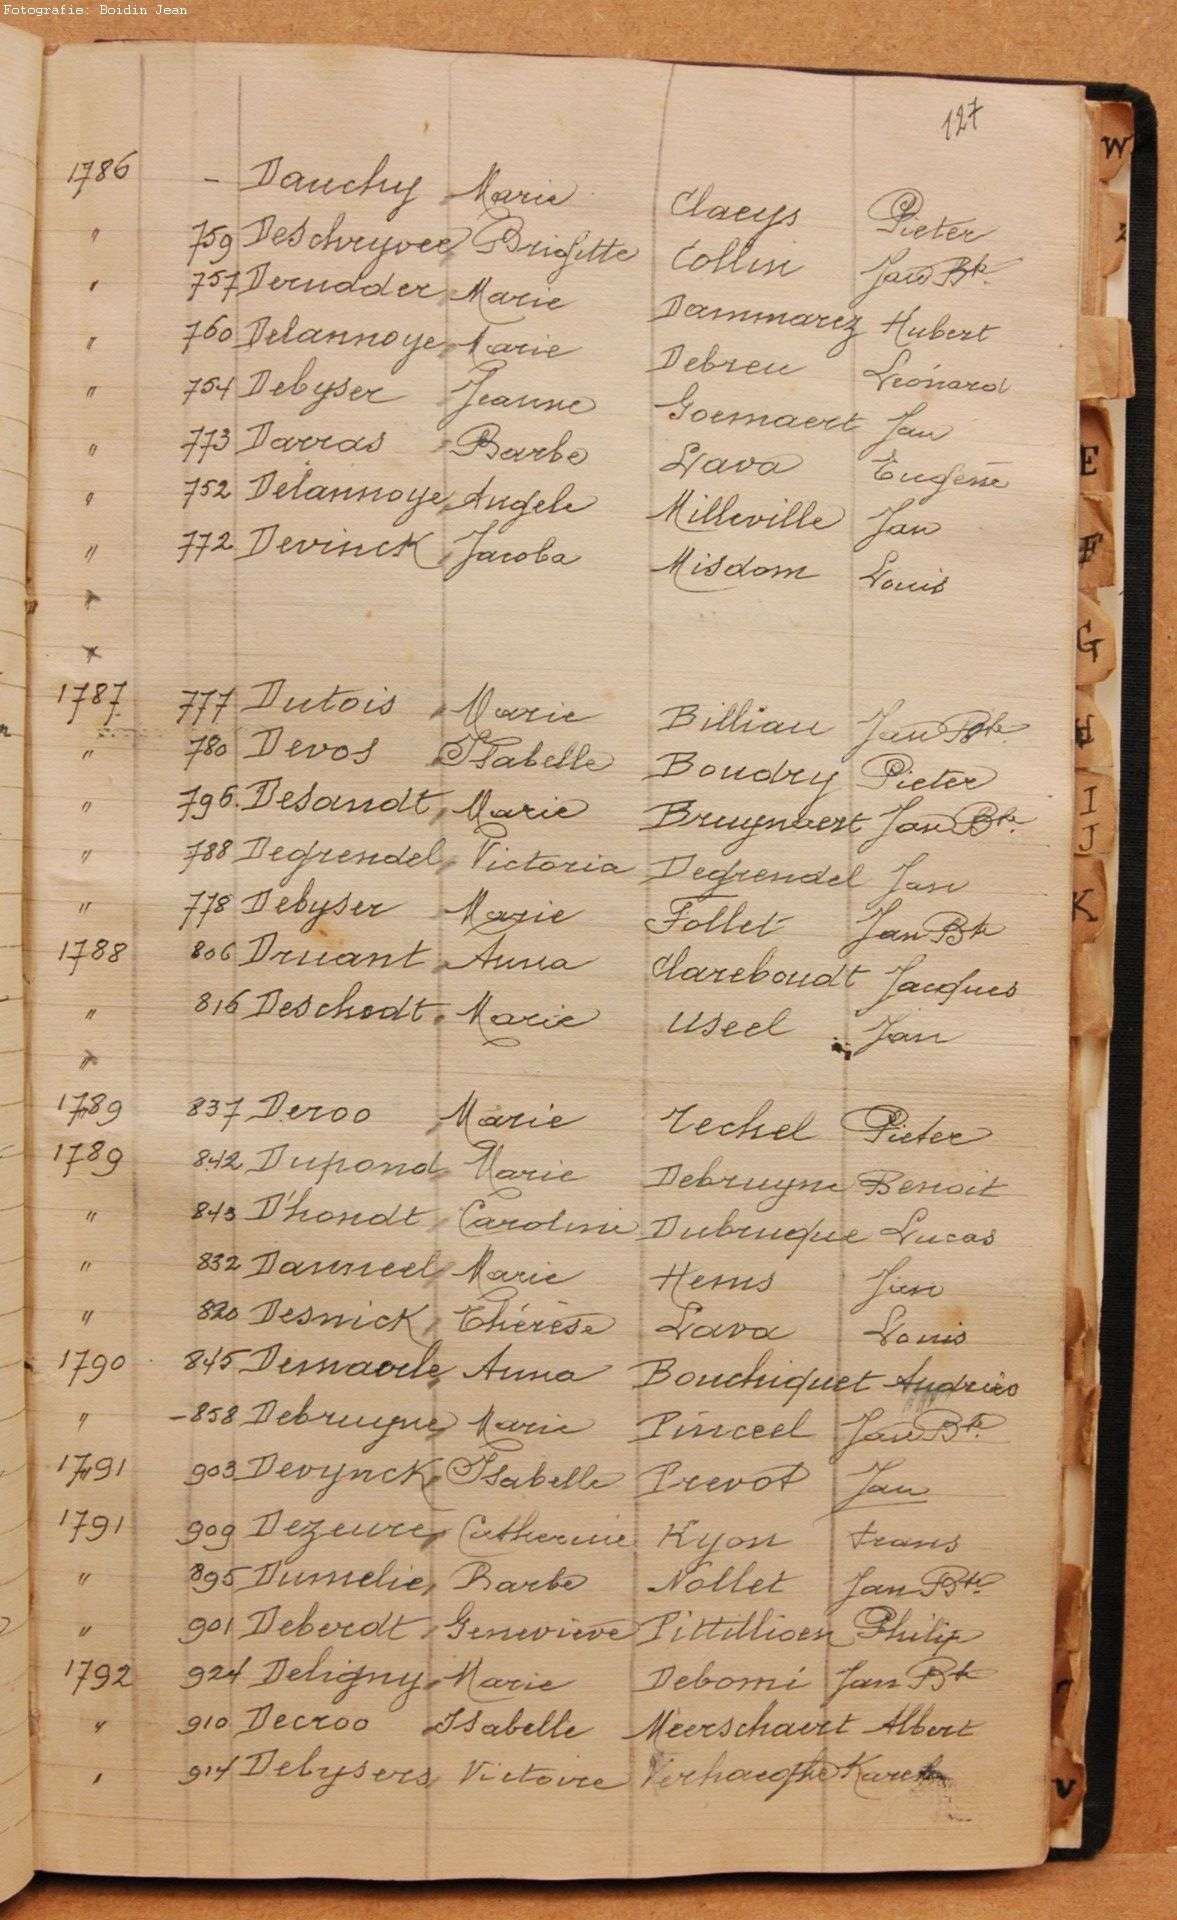 Fotografie: Boidin Jean
127
1786 - Dauchy Marie Claeys Pieter
" 759 Deschryvee Brigitte Collin Jan Bte.
" 757 Derudder Marie Dammarez Hubert
" 760 Delannoye Marie Debreu Léonard
" 754 Debyser Jeanne Goemaert Jan
" 773 Darras Barbe Lava Eugène
" 752 Delannoye Angele Milleville Jan
" 772 Devinck Jacoba Misdom Louis
"
"
1787 777 Dutois Marie Billiau Jan Bte
" 780 Devos Isabelle Boudry Pieter
" 796. Desandt Marie Bruynaert Jan Bte.
" 788 Degrendel Victoria Degrendel Jan
" 778 Debyser Marie Follet Jan Bte
1788 806 Druant Anna Clareboudt Jacques
" 816 Deschodt Marie Useel Jan
"
1789 837 Deroo Marie Techel Pieter
1789 842 Dupond Marie Debruyne Benoit
" 843 D'hondt Caroline Dubruque Lucas
" 832 Danneel Marie Hems Jan
" 820 Desnick Thérèse Lava Louis
1790 845 Demaerle Anna Bouchiquet Andries
" -858 Debruyne Marie Pinceel Jan Bte.
1791 903 Devynck Isabelle Prevot Jan
1791 909 Dezeure Catherine Kyon Frans
" 895 Dumelie Barbe Nollet Jan Bte.
" 901 Deberdt Geneviève Pittillioen Philip
1792 924 Deligny Marie Debomi Jan Bte
" 910 Decroo Isabelle Meerschaert Albert
" 914 Debysers Victoire Verhaeghe Karel
W
Z
E
F
G
H
I
J
K
V